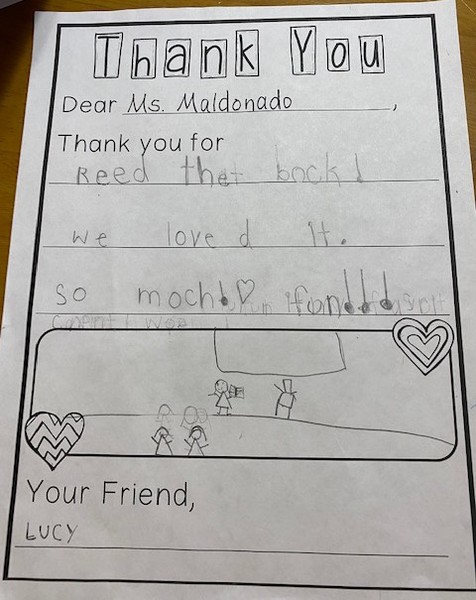 Thank You
Dear Ms. Maldonado,
Thank you for
Reed thet bock!
We loved It.
So moch!♡ fun!!!
Your Friend,
LUCY